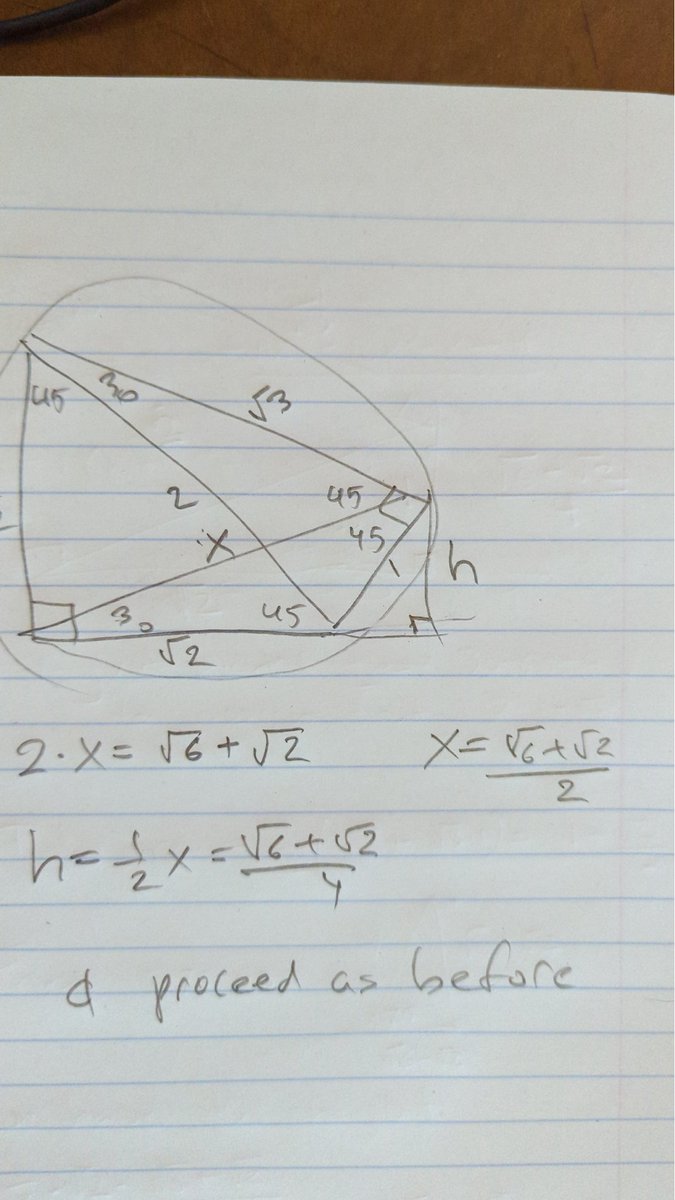 45 30 √3
2 45
x 45 1 h
30 45
√2
2·x = √6 + √2 x = √6 + √2 / 2
h = 1/2 x = √6 + √2 / 4
& proceed as before